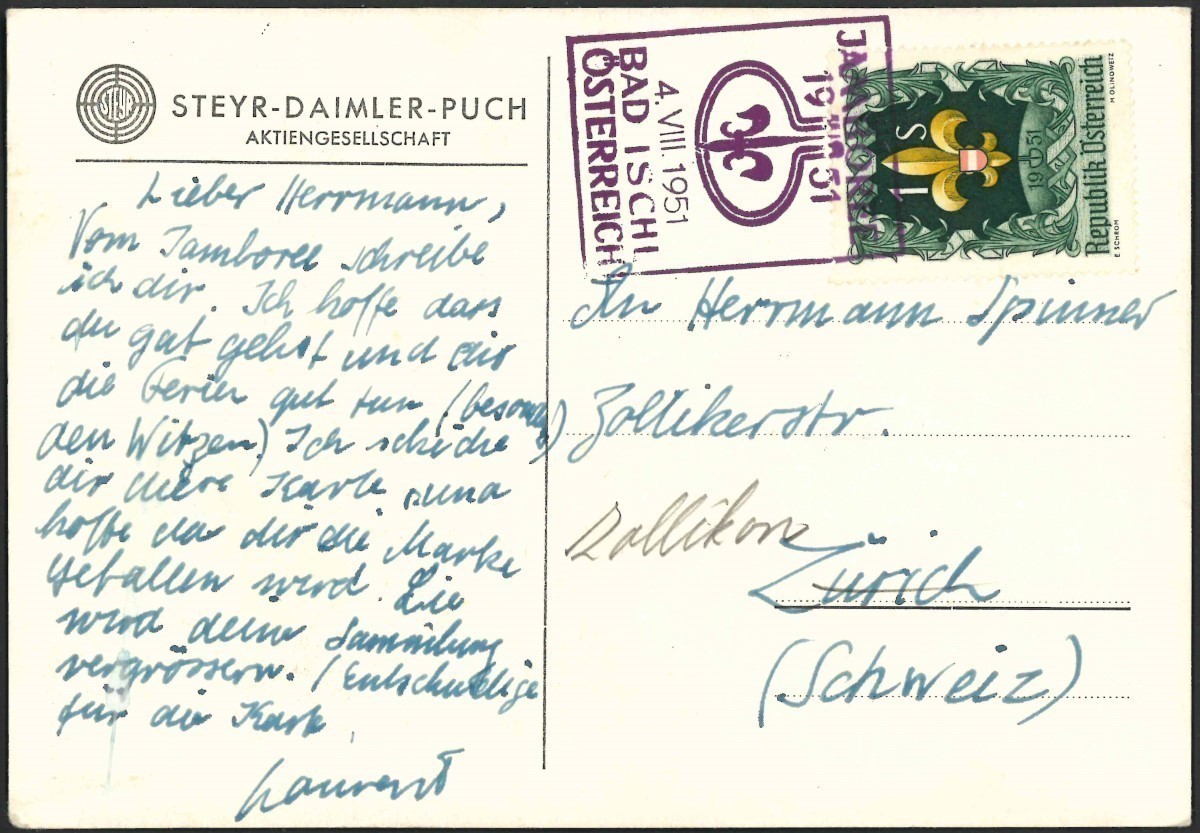 STEYR
STEYR-DAIMLER-PUCH
AKTIENGESELLSCHAFT
Lieber Herrmann,
Vom Jamboree schreibe
ich dir. Ich hoffe dass
du gut gehst und dir
die Ferien gut tun (besonders)
den Witzen) Ich schicke
dir diese Karte und
hoffe da dir die Marke
gefallen wird. Sie
wird deine Sammlung
vergrössern. (Entschuldige
für die Karte
Laurent
JAMBOREE
1951
4. VIII. 1951
BAD ISCHL
ÖSTERREICH
1 S
1951
Republik Österreich
H OLINOWETZ
E SCHROM
An Herrmann Spinner
Zollikerstr.
Zollikon
Zürich
(Schweiz)